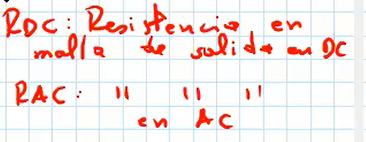 RDC: Resistencia en
malla de salida en DC
RAC: " " "
en AC